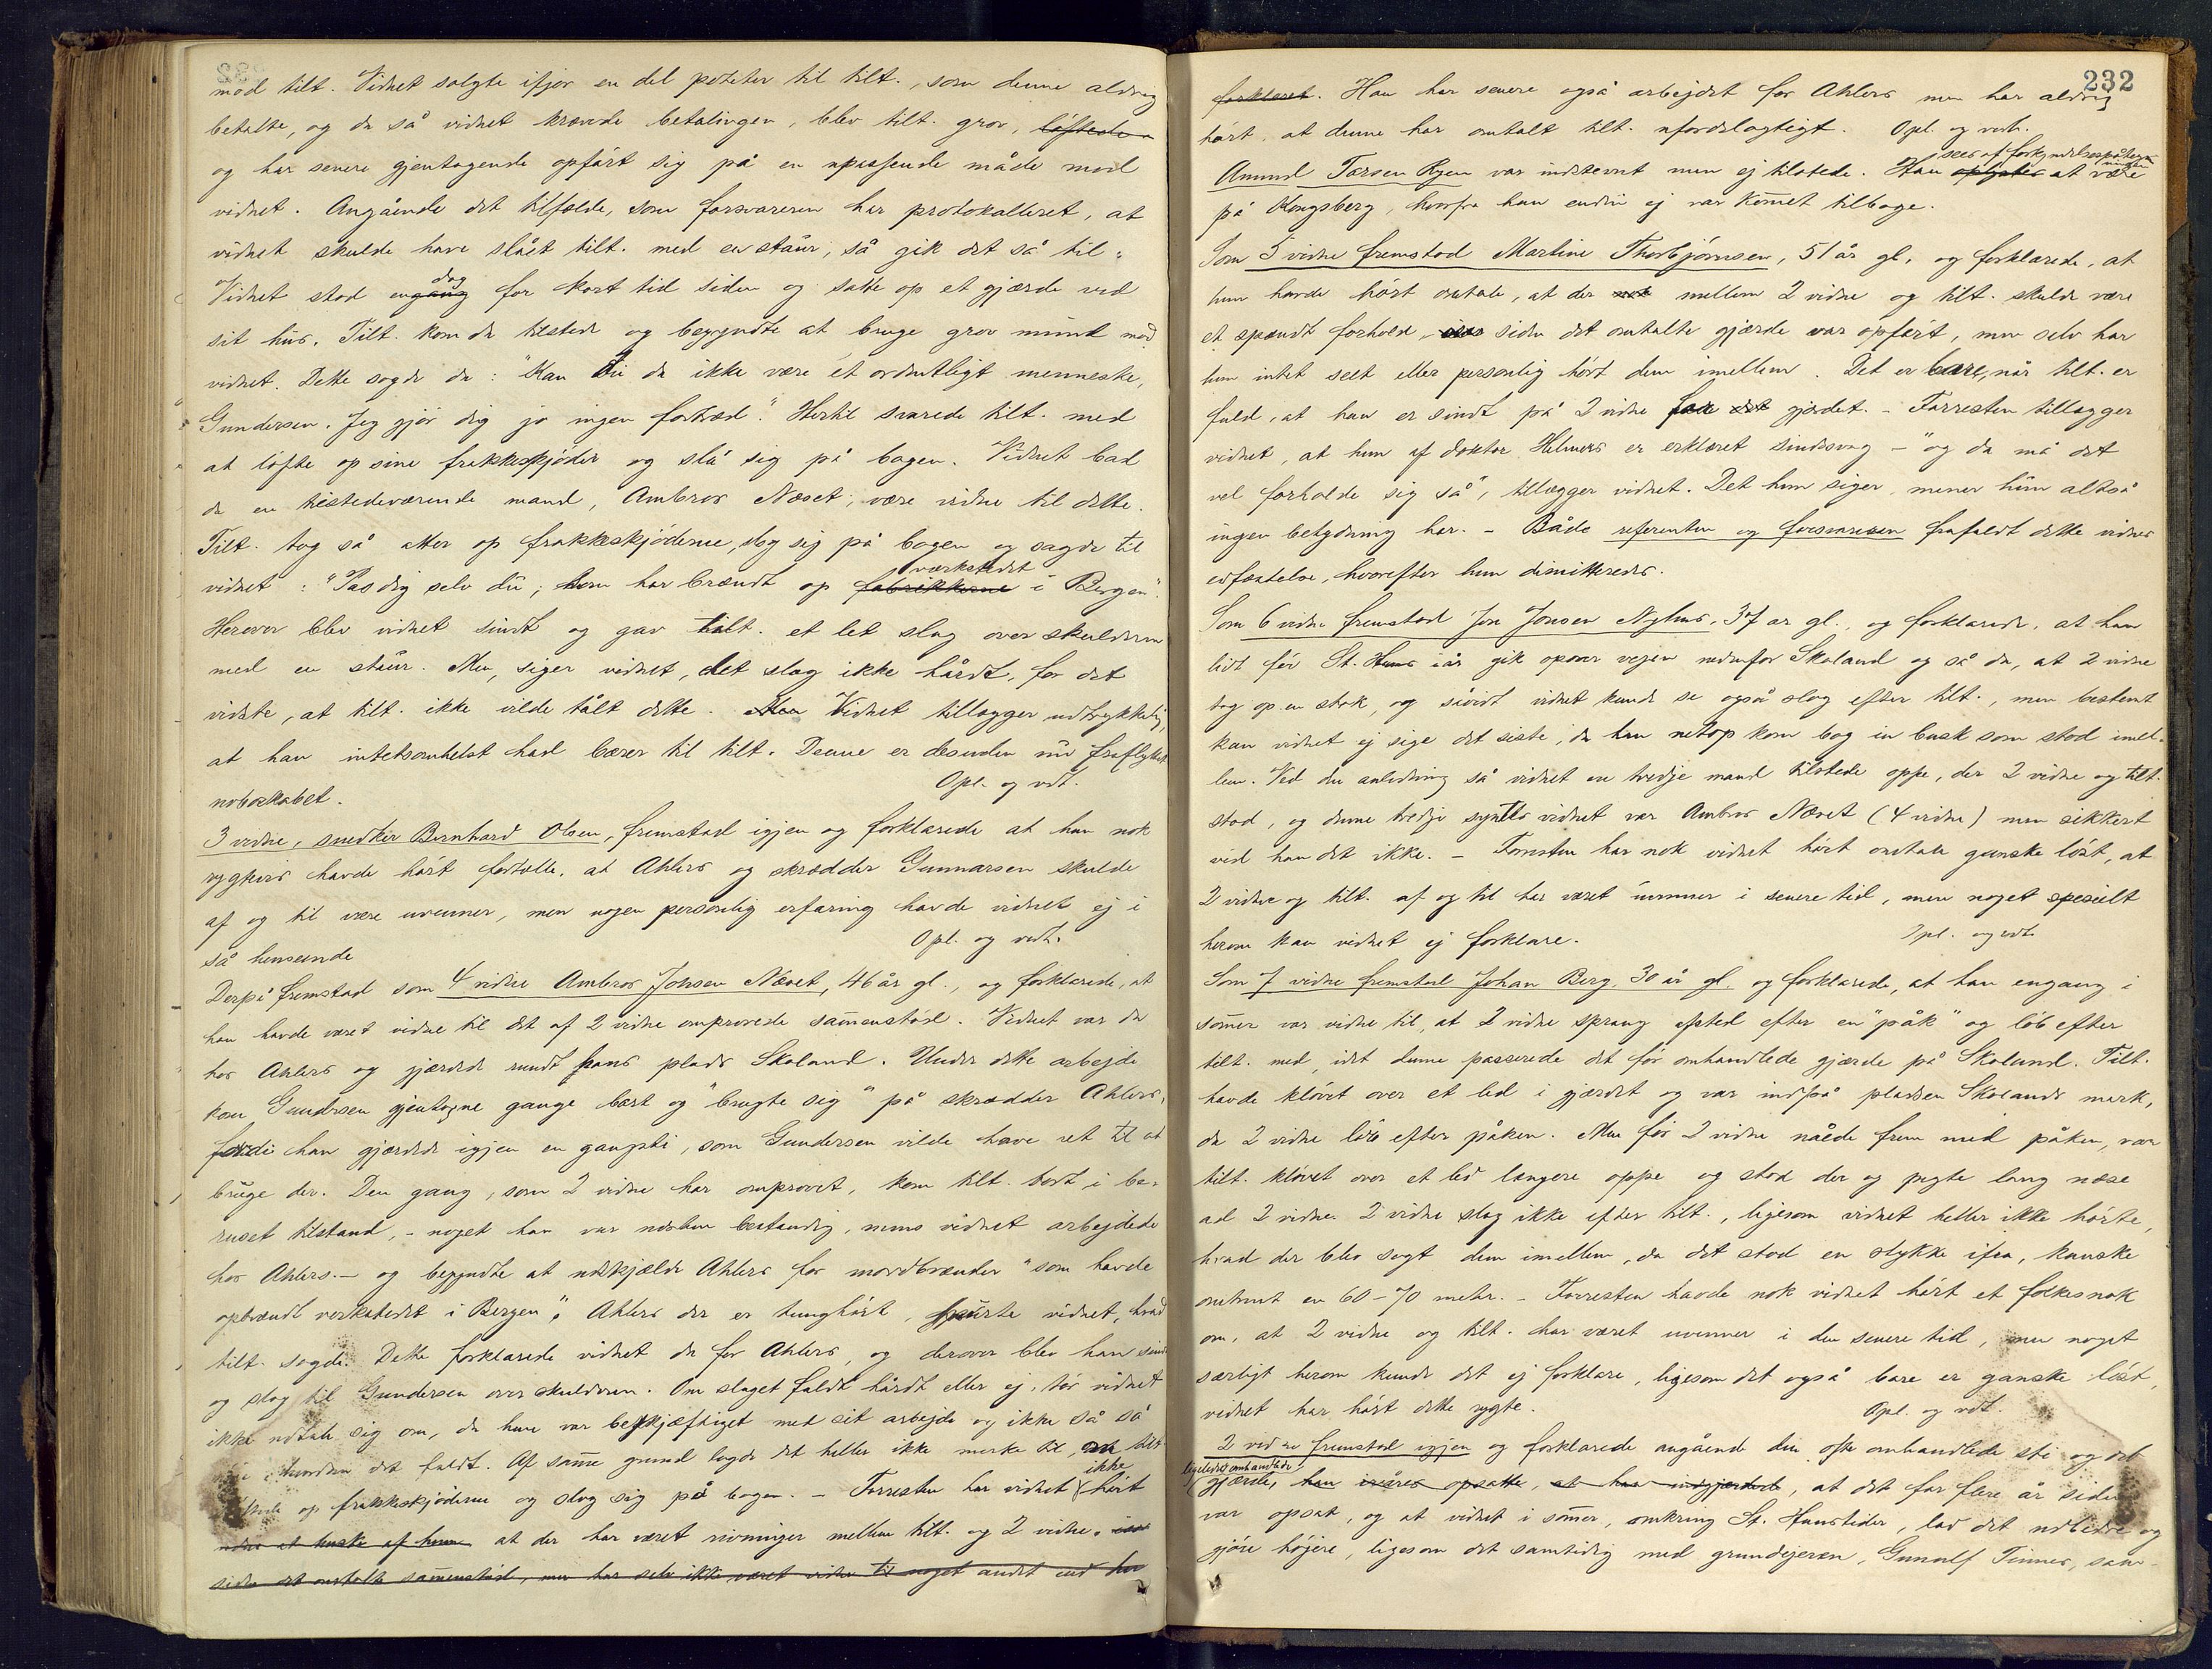 mod tilt. Vidnet solgte ifjor en del poteter til tilt., som denne aldrig
betalte, og da så vidnet krævede betalingen, blev tilt. grov, løftede
og har senere gjentagende opført sig på en upassende måde mod
vidnet. Angående det tilfælde, som forsvareren har protokolleret, at
vidnet skulde have slået tilt. med en staur, så gik det så til:
Vidnet stod en gang dag for kort tid siden og satte op et gjærde ved
sit hus. Tilt. kom da tilstede og begyndte at bruge grov mund mod
vidnet. Dette sagde da: "Kan du da ikke være et ordentligt menneske,
Gundersen. Jeg gjør dig jo ingen fortræd." Hertil svarede tilt. med
at løfte op sine frakkeskjøder og slå sig på bagen. Vidnet bad
da en tilstedeværende mand, Ambros Næset, være vidne til dette.
Tilt. tog så atter op frakkeskjøderne, slog sig på bagen og sagde til
vidnet: "Pas dig selv du, som har brændt op fabrikkerne værkstedet i Bergen".
Herover blev vidnet sindt og gav tilt. et let slag over skulderen
med en staur. Men, siger vidnet, det slog ikke hårdt, for det
vidste, at tilt. ikke vilde tålt dette. Vidnet tillægger udtrykkelig,
at han intetsomhelst had bærer til tilt. Denne er desuden nu fraflyttet
naboskabet. Opl. og vdt.
3 vidne, snedker Bernhard Olsen, fremstod igjen og forklarede at han nok
rygtevis havde hørt fortælle, at Ahlers og skrædder Gunnarsen skulde
af og til være uvenner, men nogen personlig erfaring havde vidnet ej i
så henseende Opl. og vedt.
Derpå fremstod som 4 vidne Ambros Johsen Næset, 46 år gl., og forklarede, at
han havde været vidne til det af 2 vidne omprovede sammenstød. Vidnet var da
hos Ahlers og gjærdede rundt hans plads Skoland. Under dette arbejde
kom Gundersen gjentagne gange bort og "brugte sig" på skrædder Ahlers,
fordi han gjærdede igjen en gangsti, som Gundersen vilde have ret til at
bruge der. Den gang, som 2 vidne har omprovet, kom tilt. bort i be-
ruset tilstand, - noget han var næsten bestandig, mens vidnet arbejdede
hos Ahlers. - og begyndte at udskjælde Ahlers for mordbrænder "som havde
opbrændt verkstedet i Bergen". Ahlers der er tunghørt, spurte vidnet, hvad
tilt. sagde. Dette forklarede vidnet da for Ahlers, og derover blev han sindt
og slog til Gundersen over skulderen. Om slaget faldt hårdt eller ej, tør vidnet
ikke udtale sig om, da han var beskjæftiget med sit arbejde og ikke så så
nøie hvordan det faldt. Af samme grund lagde det heller ikke merke til, om tilt.
op frakkeskjøderne og slog sig på bagen. - Forresten har vidnet ikke hørt
at der har været rivninger mellem tilt. og 2 vidne.
siden det omtalte sammenstød, men har selv ikke været vidne til noget andet end
232
forklaret. Han har senere også arbejdet for Ahlers men har aldrig
hørt, at denne har omtalt tilt. ufordelagtigt. Opl. og vedt.
Amund Tarsen Ryen var indstevnt men ej tilstede. Han oplystes sees af forkyndelsespåtegningen at være
på Kongsberg, hvorfra han endnu ej var kommet tilbage.
Som 5 vidne fremstod Martine Thorbjørnsen, 51 år gl. og forklarede, at
hun havde hørt omtale, at der mellem 2 vidne og tilt. skulde være
et spændt forhold siden det omtalte gjærde var opført, men selv har
hun intet seet eller personlig hørt dem imellem. Det er bare, når tilt. er
fuld, at han er sindt på 2 vidne for det gjærdet. - Forresten tillægger
vidnet, at hun af doktor Helmers er erklæret sindssvag - "og da må det
vel forholde sig så", tillægger vidnet. Det hun siger, mener hun altså
ingen betydning har. - Både referenten og forsvareren frafaldt dette vidnes
edfæstelse, hvorefter hun dimitteredes.
Som 6 vidne fremstod Jon Jonsen Nyhus, 37 år gl., og forklarede, at han
lidt før St. Hans iår gik opover vejen nedenfor Skoland og så da, at 2 vidne
tog op en stok, og såvidt vidnet kunde se også slog efter tilt., men bestemt
kan vidnet ej sige det siste, da han netop kom bag en busk som stod imel-
lem. Ved den anledning så vidnet en tredje mand tilstede oppe, der 2 vidne og tilt.
stod, og denne tredje syntes vidnet var Ambros Næset (4 vidne) men sikkert
ved han det ikke. - Forresten har nok vidnet hørt omtale ganske løst, at
2 vidne og tilt. af og til har været uvenner i senere tid, men noget specielt
herom kan vidnet ej forklare. Opl. og vdt.
Som 7 vidne fremstod Johan Berg, 30 år gl. og forklarede, at han engang i
sommer var vidne til, at 2 vidne sprang afsted efter en "påk" og løb efter
tilt. med, idet denne passerede det før omhandlede gjærde på Skoland. Tilt.
havde kløvet over et led i gjærdet og var indpå pladsen Skolands mark,
da 2 vidne løb efter påken. Men før 2 vidne nåede frem med påken, var
tilt. kløvet over et led længere oppe og stod der og pegte lang næse
ad 2 vidne. 2 vidne slog ikke efter tilt., ligesom vidnet heller ikke hørte,
hvad der blev sagt dem imellem, da det stod en stykke ifra, kanske
omtrent en 60-70 meter. - Forresten havde nok vidnet hørt et folkesnak
om, at 2 vidne og tilt. har været uvenner i den senere tid, men noget
særligt herom kunde det ej forklare, ligesom det også bare er ganske løst,
vidnet har hørt dette rygte. Opl. og vdt.
2 vidne fremstod igjen og forklarede angående den ofte omhandlede sti og det
ligeledes omhandlede gjærde, han ivåres opsatte, at han indgjærdede, at det for flere år siden
var opsat, og at vidnet i sommer, omkring St. Hanstider, lod det udbedre og
gjøre højere, ligesom det samtidig med grundejeren, Gunulf Tinnes, sam-